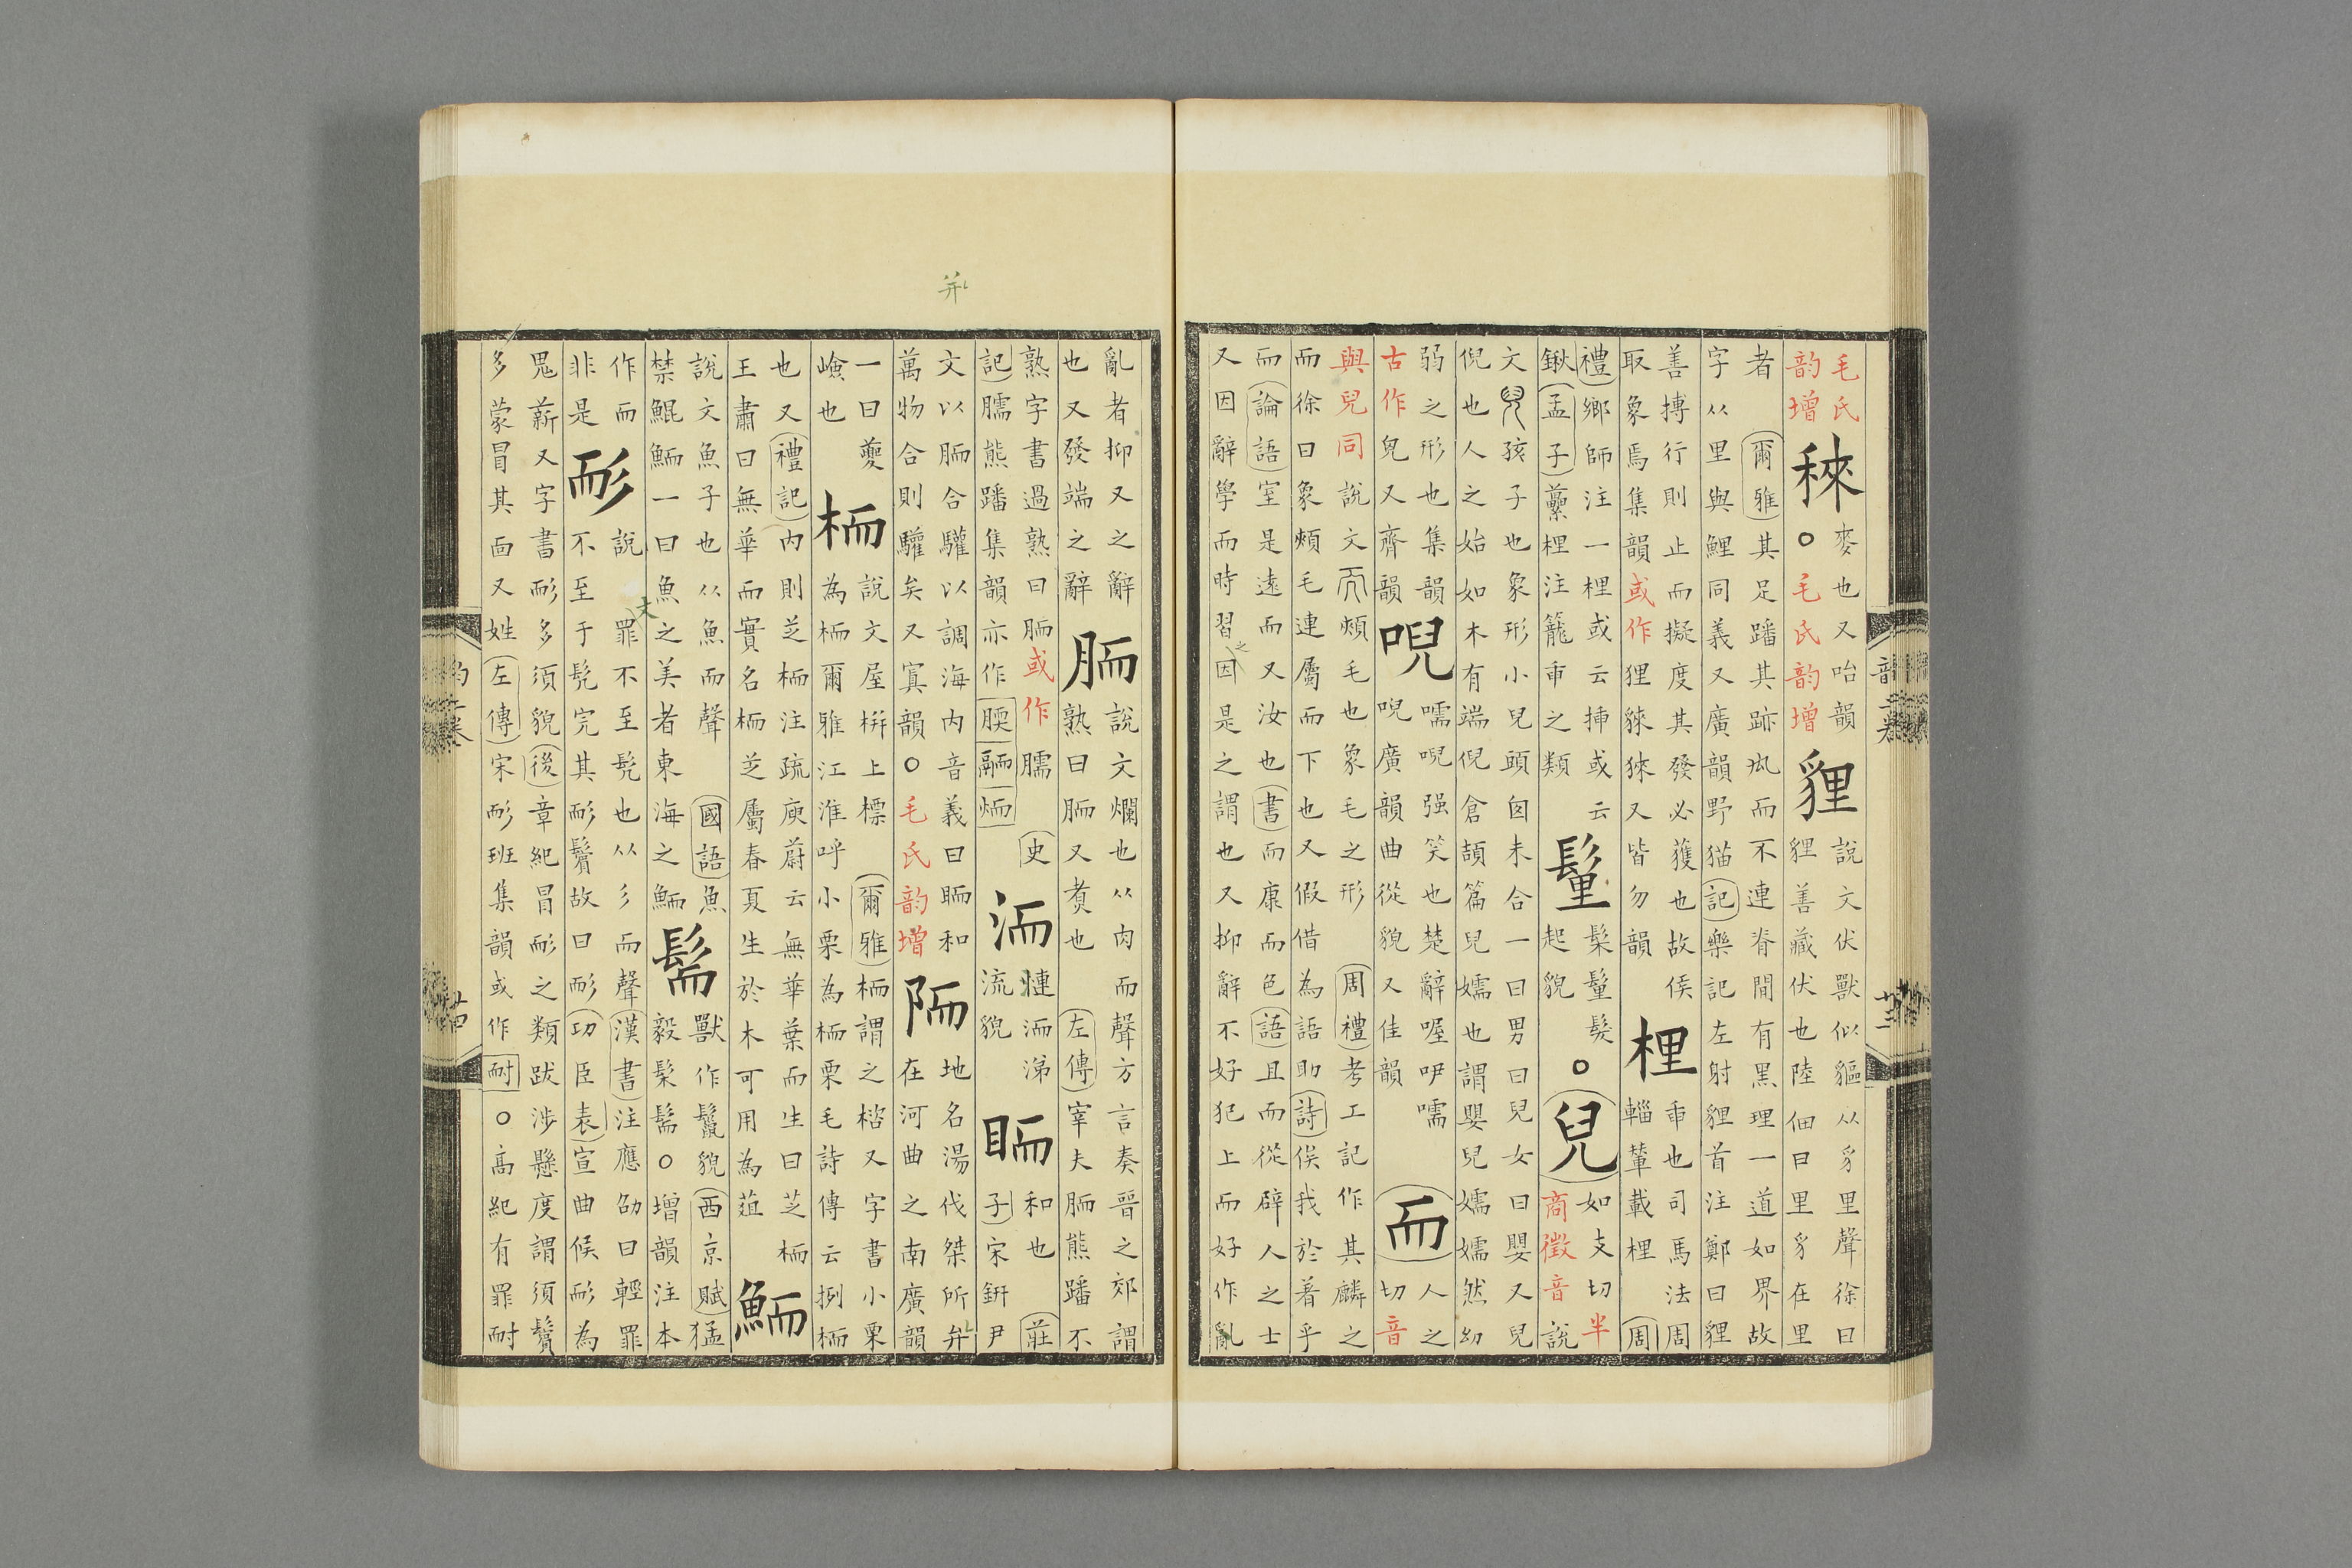 毛氏
韵增
䅘
麥也又咍韻
○毛氏韵增
貍
說文伏獸似貙从豸里聲徐曰
貍善藏伏也陸佃曰里豸在里
者爾雅其足蹯其跡𤜵而不連脊間有黑理一道如界故
字从里與鯉同義又廣韻野猫記樂記左射貍首注鄭曰貍
善搏行則止而擬度其發必獲也故侯
取象焉集韻或作狸𧳟猍又皆勿韻
梩
臿也司馬法周
輜輦載梩周
禮鄉師注一梩或云捶或云
鍬孟子虆梩注籠臿之類
髤髮
起貌○
兒
如支切半
商徵音說
文兒孩子也象形小兒頭囟未合一曰男曰兒女曰嬰又兒
倪也人之始如木有端倪倉頡篇兒嬬也謂嬰兒嬬嬬然幼
弱之形也集韻
古作皃又齊韻
唲
嚅唲强笑也楚辭喔咿嚅
唲廣韻曲從貌又佳韻
而
人之
切音
與兒同說文而頰毛也象毛之形周禮考工記作其麟之
而徐曰象頰毛連屬而下也又假借為語助詩俟我於著乎
而論語室是遠而又汝也書而康而色語且而從辟人之士
又因辭學而時習之因是之謂也又抑辭不好犯上而好作亂
亂者抑又之辭
也又發端之辭
胹
說文爛也从肉而聲方言秦晉之郊謂
熟曰胹又煑也左傳宰夫胹熊蹯不
熟字書過熟曰胹或作臑史
記臑熊蹯集韻亦作腝𩱓㸆
洏
漣洏涕
流貌
𥅡
和也莊
子宋鈃尹
文以胹合驩以調海内音義曰𥅡和
萬物合則驩矣又寘韻○毛氏韵增
陑
地名湯伐桀所
在河曲之南廣韻
一曰夔
嶮也
栭
說文屋枅上標爾雅栭謂之楶又字書小栗
為栭爾雅江淮呼小栗為栭栗毛詩傳云捌栭
也又禮記内則芝栭注疏庾蔚云無華葉而生曰芝栭
王肅曰無華而實名栭芝屬春夏生於木可用為菹
鮞
說文魚子也从魚而聲國語魚
禁鯤鮞一曰魚之美者東海之鮞
髵
獸作鬣貌西京賦猛
毅髤髵○增韻注本
作而
非是
耏
說罪不至髡也从彡而聲漢書注應劭曰輕罪
不至于髡完其耏鬢故曰耏功臣表宣曲侯耏為
鬼薪又字書耏多須貌後章紀冒耏之類跋涉懸度謂須鬢
多蒙冒其面又姓左傳宋耏班集韻或作耐○高紀有罪耐